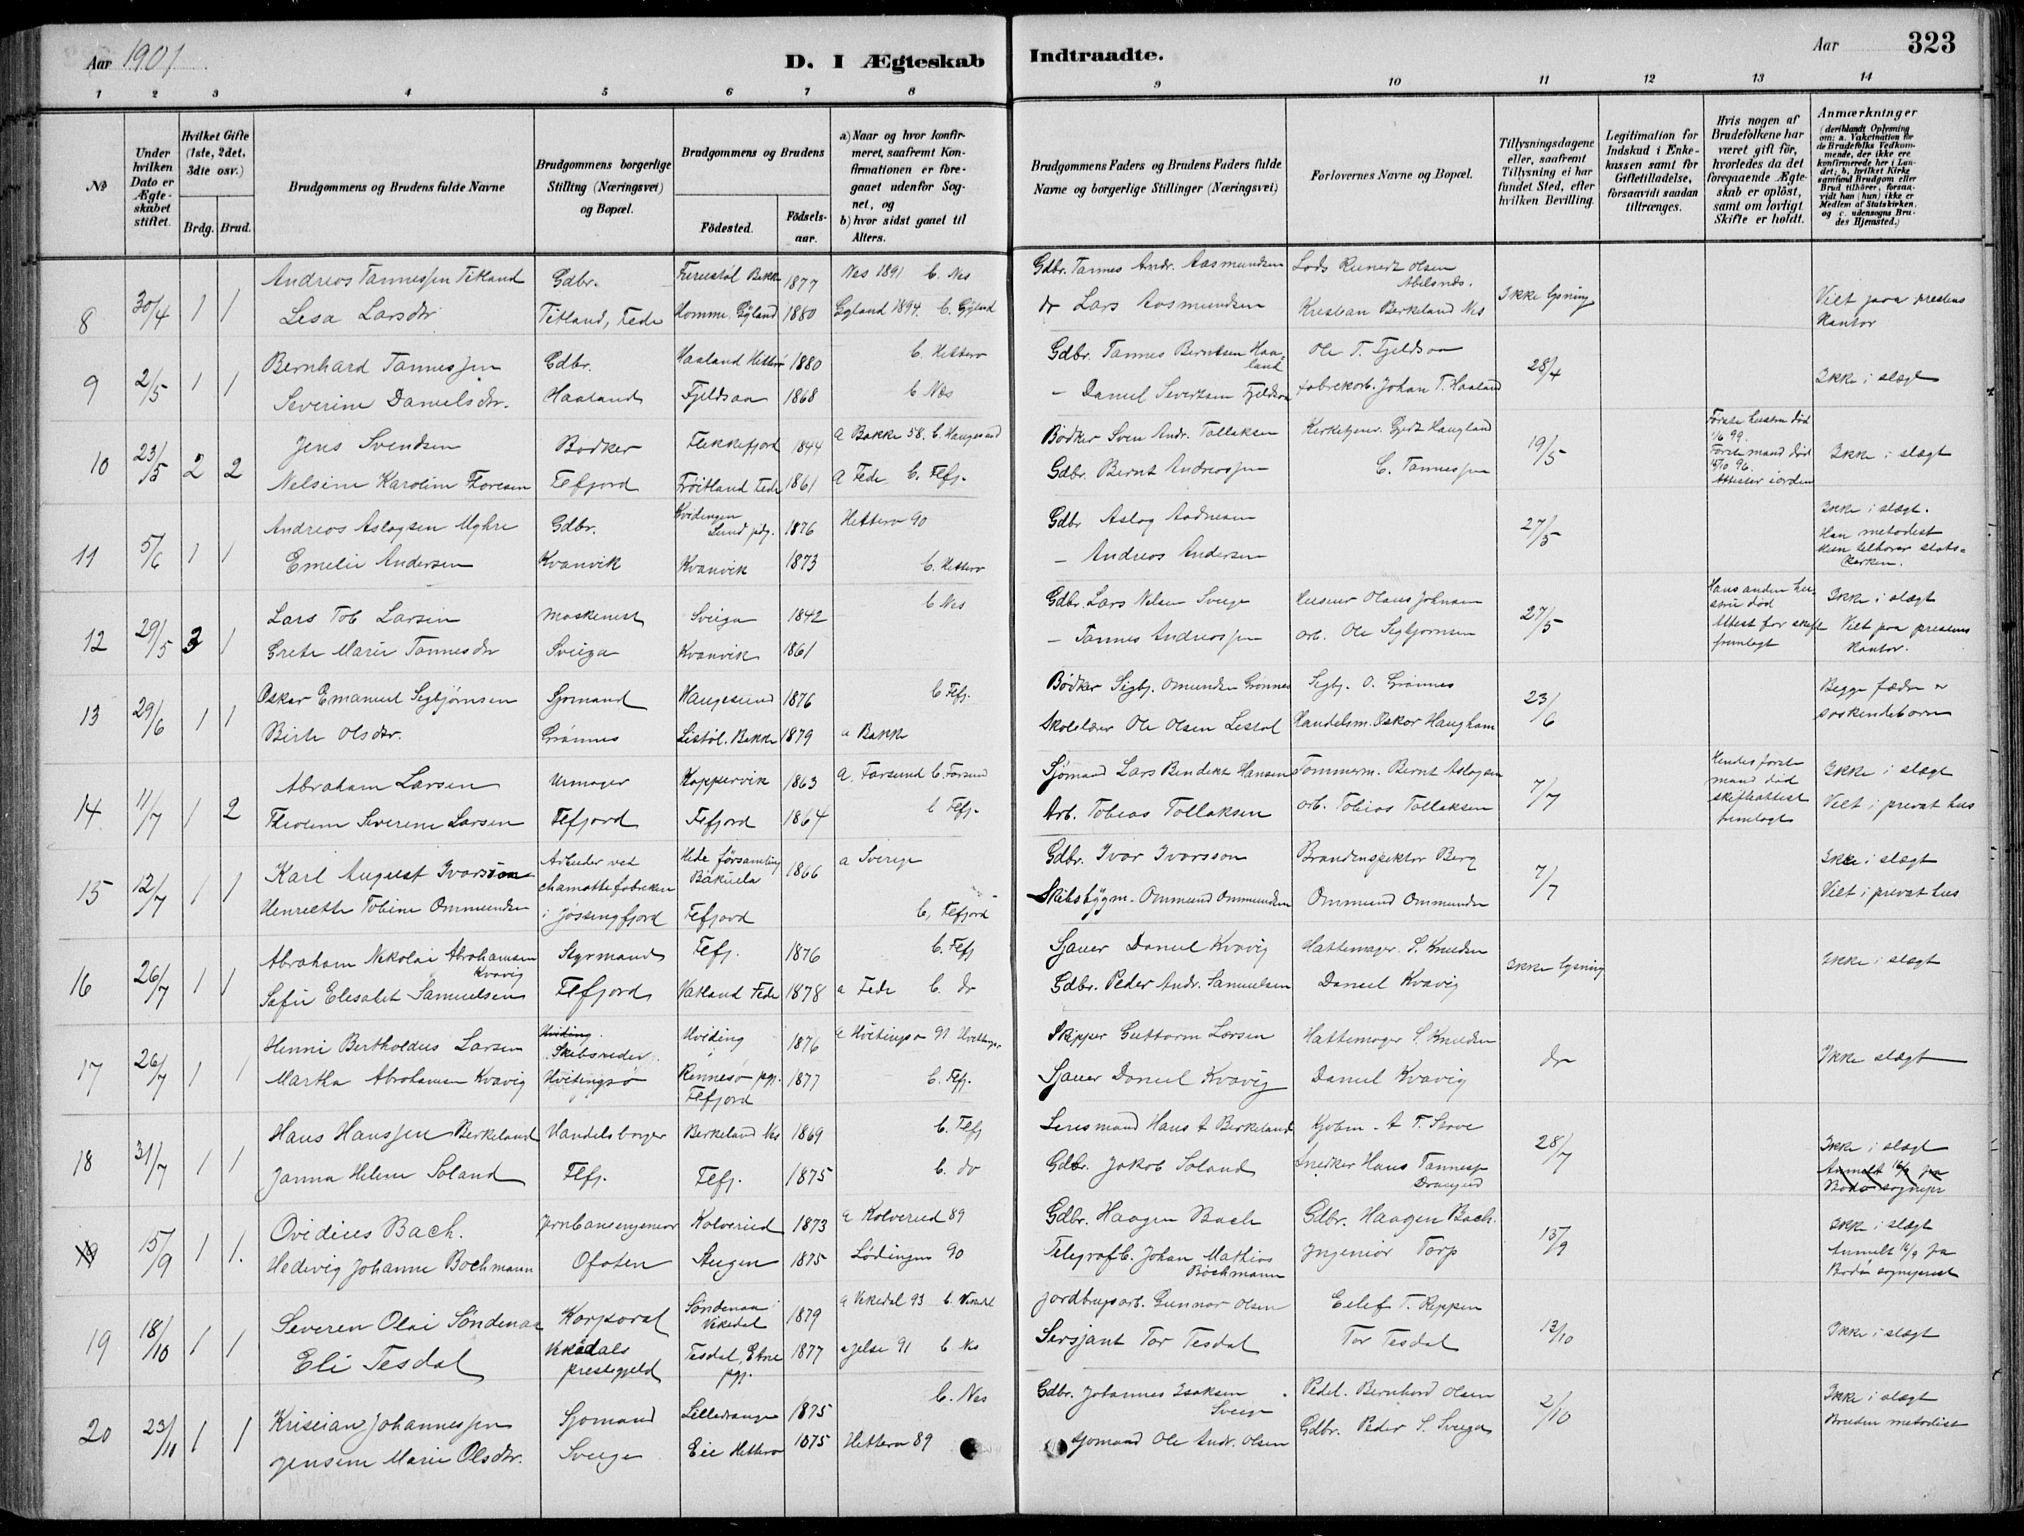 Aar 1901.
D. I Ægteskab Indtraadte.
Aar 323
1 2 3 4 5 6 7 8 9 10 11 12 13 14
No
Under hvilken Dato er Ægteskabet stiftet.
Hvilket Gifte (1ste, 2det, 3die osv.)
Brdg. Brud.
Brudgommens og Brudens fulde Navne
Brudgommens borgerlige Stilling (Næringsvei) og Bopæl.
Brudgommens og Brudens
Fødested.
Fødsels-aar.
a) Naar og hvor konfirmeret, saafremt Konfirmationen er foregaaet udenfor Sognet, og
b) hvor sidst gaaet til Alters.
Brudgommens Faders og Brudens Faders fulde Navne og borgerlige Stillinger (Næringsvei)
Forlovernes Navne og Bopæl.
Tillysningsdagene eller, saafremt Tillysning ei har fundet Sted, efter hvilken Bevilling.
Legitimation for Indskud i Enkekassen samt for Giftetilladelse, forsaavidt saadan tiltrænges.
Hvis nogen af Brudefolkene har været gift før, hvorledes da det foregaaende Ægteskab er opløst, samt om lovligt Skifte er holdt.
Anmærkninger
(deriblandt Oplysning om: a. Vakcination for de Brudefolks Vedkommende, der ikke ere konfirmerede her i Landet; b. hvilket Kirkesamfund Brudgom eller Brud tilhører, forsaavidt han (hun) ikke er Medlem af Statskirken, og c. udensogns Brudes Hjemsted.)
8 30/4 1 1 Andreas Tannessen Titland Gdbr. Furustøl Bakke 1877 Nes 1891 b. Nes Gdbr. Tannes Andr. Aasmundsen Lods Reinert Olsen Abilsnes. Ikke lysning Viet paa prestens kontor
Lisa Larsdtr Titland, Fede Homme, Gyland 1880 Gyland 1894. b. Gyland do Lars Aasmundsen Kristian Berkeland Nes
9 2/5 1 1 Bernhard Tannessen Gdbr. Haaland Hitterø 1880 b. Hitterø Gdbr. Tannes Berntsen Haaland Ole T. Fjeldsaa 28/4 Ikke i slægt
Severine Danielsdtr. Haaland Fjeldsaa 1868 b Næs - Daniel Sivertsen Fjeldsaa fabrikarb. Johan T. Haaland
10 23/5 2 2 Jens Svendsen Bødker Flekkefjord 1844 a Bakke 58. b. Haugesund Bødker Sven Andr. Tollaksen Kirketjener Gjert Haugland 19/5 Første hustru død 1/6 99. Første mand død 15/10 96. Attester i orden Ikke i slægt
Nelsine Karoline Thorsen Flefjord Frøitland Fede 1861 a Fede b. Flefj. Gdbr. Bernt Andreassen C. Tannessen
11 5/6 1 1 Andreas Aslagsen Myhre Gdbr. Kvidingen Lund pdg. 1876 Hitterø 90 Gdbr Aslag Aadnesen 27/5 Ikke i slægt. Han metodist hun tilhører statskirken.
Emelie Andersen Kvanvik Kvanvik 1873 b. Hitterø - Andreas Andersen
12 29/5 3 1 Lars Tob Larsen Maskinist Sveiga 1842 b Nes Gdbr. Lars Nilsen Sveige Husmr Olaus Johnsen 27/5 Hans anden hustru død Attest for skift fremlagt Ikke i slægt Viet paa prestens kontor.
Grete Marie Tannesdtr Sveiga Kvanvik 1861 - Tannes Andreassen arb. Ole Sigbjørnsen
13 29/6 1 1 Oskar Emanuel Sigbjørnsen Sjømand Haugesund 1876 b Flefj. Bødker Sigbj. Omundsen Grønnes Sigbj. O. Grønnes 23/6 Begge fædre er søskendebørn
Birte Olsdtr. Grønnes Listøl. Bakke 1879 a Bakke Skolelærer Ole Olsen Listøl Handelsm. Oskar Haugham
14 11/7 1 2 Abraham Larsen Urmager Koppervik 1863 a. Farsund b. Farsund Sjømand Lars Bendikt Hansen Tømmerm. Bernt Aslagsen 7/7 Hendes første mand død skifteattest fremlagt Ikke i slægt Viet i privat hus
Thorine Severine Larsen Flefjord Flefjord 1864 b Flefj. Arb. Tobias Tollaksen arb. Tobias Tollaksen
15 12/7 1 1 Karl August Ivarsson Arbeider ved chamottefabriken Hede församling Bakuela 1866 a Sverige Gdbr. Ivar Ivarsson Brandinspektør Berg 7/7 Ikke i slægt Viet i privat hus
Henriette Tobine Ommundsen i Jøssingfjord Flefjord b, Flefjord Skibsbygm. Ommund Ommundsen Ommund Ommundsen
16 26/7 1 1 Abraham Nikolai Abrahamsen Kvavig Styrmand Flefj. 1876 b. Flefj Sjauer Daniel Kvavig Hattemager. S. Knudsen Ikke lysning Ikke i slægt
Sofie Elisabet Samuelsen Flefjord Vatland Fede 1878 a Fede b. do Gdbr. Peder Andr. Samuelsen Daniel Kvavig
17 26/7 1 1 Henni Bertholdus Larsen Skibsreder. Hviding 1876 a Hvitingsø 91 Skipper Guttorm Larsen Hattemager S. Knudsen do Ikke slægt
Martha Abrahamsen Kvavig Hvitingsø Rennesø pgj. Flefjord 1877 b. Flefj. Sjauer Daniel Kvavig Daniel Kvavig
18 31/7 1 1 Hans Hanssen Berkeland Handelsborger Berkeland Nes 1869 b. Flefj Lensmand Hans A Berkeland Kjøbm. A T. Stave 28/7 Ikke i slægt
Janna Helene Soland Flefj. Flefj. 1875 b. do Gdbr. Jakob Soland Snedker Hans Tannesse Anmelt 16/9 paa Bodø sognepr
19 15/9 1 1. Ovidius Bach. Jernbaneingeniør Kolvereid 1873 a Kolvereid 89 Gdbr. Haagen Bach Gdbr. Haagen Bach. 15/9 Ikke i slægt Anmelt 16/9 fra Bodin sogneprest
Hedevig Johanne Bochmann Ofoten Steigen 1875 Lødingen 90 Telegrafb. Johan Mathias Bochmann Ingeniør Torp
19 18/10 1 1 Severen Olai Søndenaa Korporal Søndenaa Vikedal 1879 a Vikedal 93 b. Vikedal Jordbrugsarb. Gunnar Olsen Eilef T. Reppen 13/10 Ikke i slægt
Eli Tesdal Vikedals prestegjeld Tesdal, Etne pgj. 1877 a Jelse 91 b Nes Sersjant Tor Tesdal Tor Tesdal
20 23/11 1 1 Kristian Johannessen Sjømand Lilledrange 1875 b. Nes Gdbr. Johannes Isaksen Sveige Pedel. Bernhard Olsen 2/10 Ikke i slægt
Jensine Marie Olsdtr. Sveige Eie Hitterø 1875 Hitterø 89 Sjømand Ole Andr. Olsen Gdbr. Peder S. Sveiga Bruden metodist